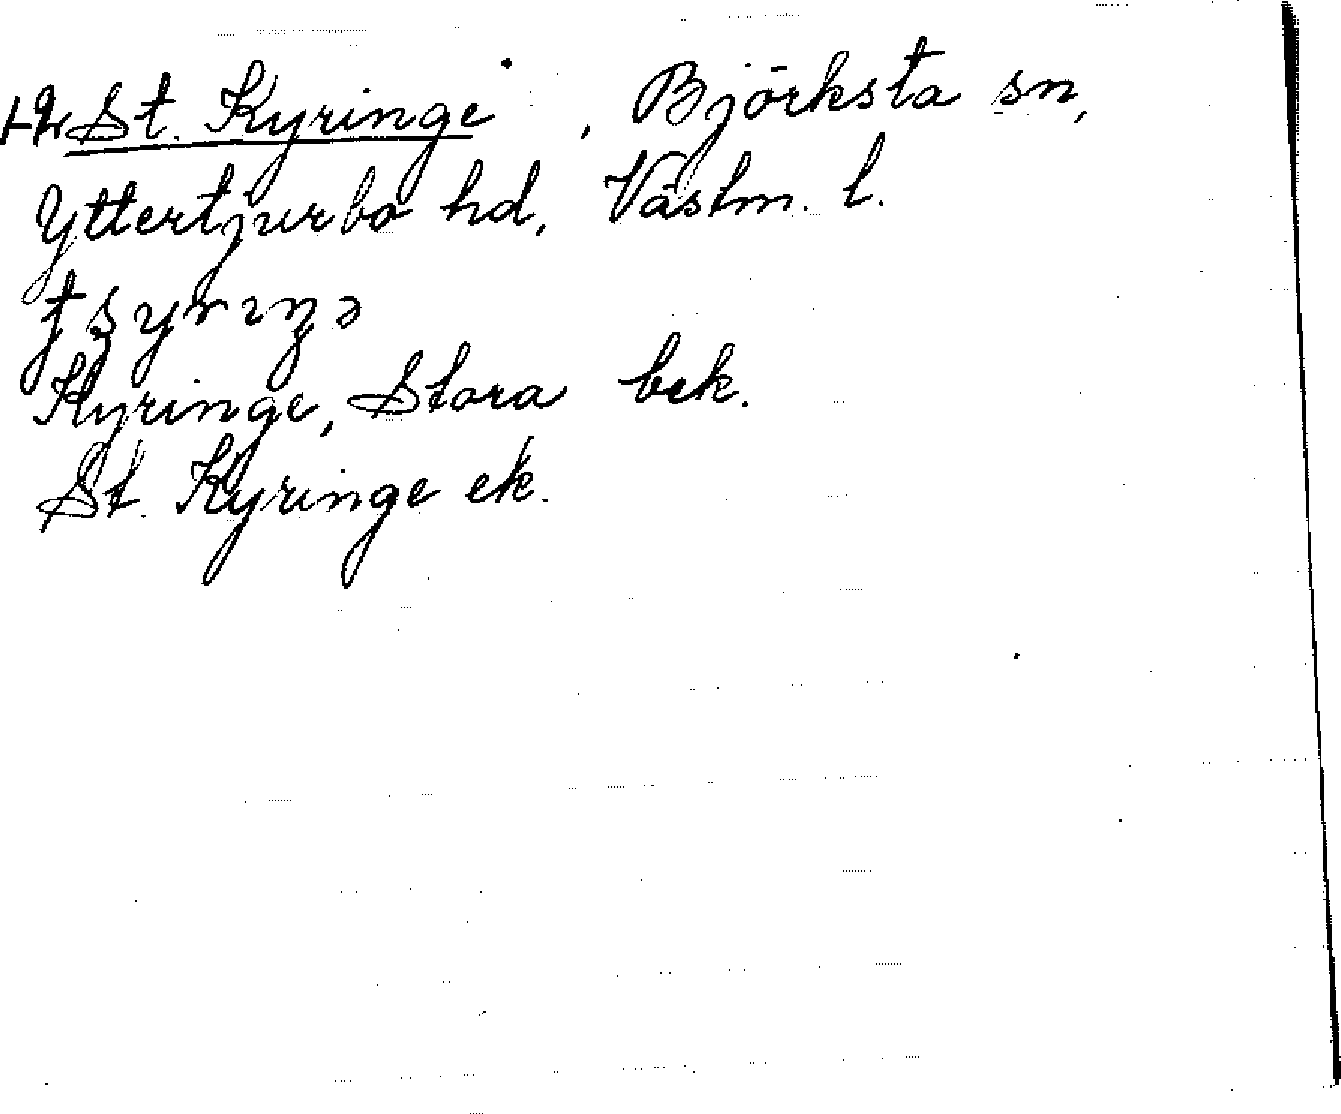 St. Kyringe, Björksta sn,
Yttertjurbo hd, Västm. l.
Kyringe, Stora bek.
St. Kyringe ek.